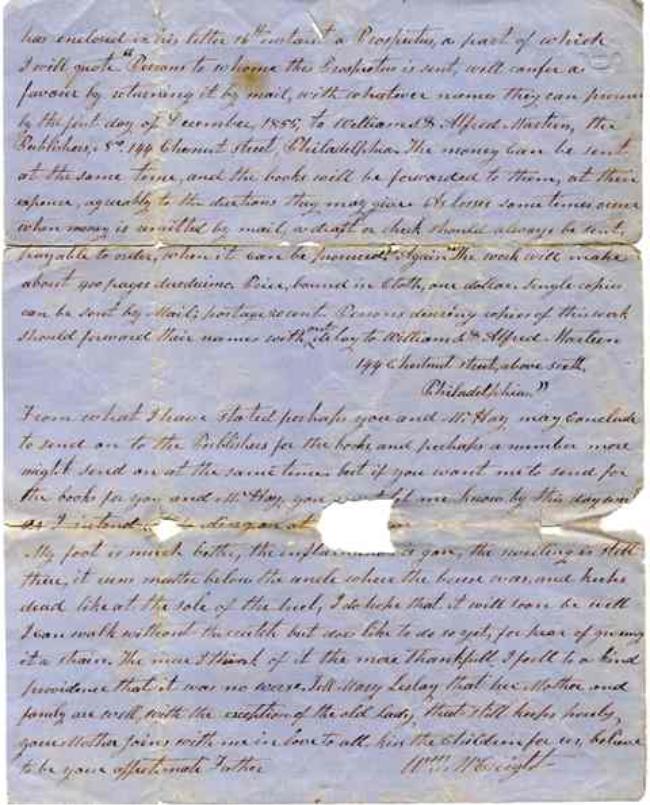 has enclosed in his letter 16th instant a Prospectus, a part of which
I will quote "Persons to whome this Prospectus is sent, will confer a
favour by returning it by mail, with whatever names they can
by the first day of December, 1855, to William S & Alfred Martien, the
Publishers, No. 144 Chesnut street, Philadelphia. The money can be sent
at the same time, and the books will be forwarded to them, at their
expence, agreeably to the directions they may give. As losses sometimes occur
when money is remitted by mail, a draft or check should always be sent,
payable to order, when it can be procured." Again "The work will make
about 400 pages duodecimo. Price, bound in Cloth, one dollar. Single copies
can be sent by Mail, postage Persons desiring copies of this work
should forward their names without delay to William S & Alfred Martien
144 Chestnut street, above sixth,
Philadelphia."
From what I have stated perhaps you and Mr Hay may conclude
to send on to the Publishers for the books and perhaps a number more
might send on at the same time. but if you want me to send for
the books for you and Mr Hay, you me know by this day
as I intend at
My foot is much better, the is gon, the swelling is still
there, it runs matter below the ancle where the bruise was, and feels
dead like at the sole of the heel, I do hope that it will soon be well
I can walk without the crutch but dont like to do so yet, for fear of giveing
it a strain. The more I think of it the more thankfull I feell to a kind
providence that it was no worse. Tell Mary Leslay that her Mother and
family are well, with the exception of the old lady, that still keeps poorly,
your Mother joins with me in love to all, kiss the Children for us, believe
to be your affectionate Father Wm. Wright